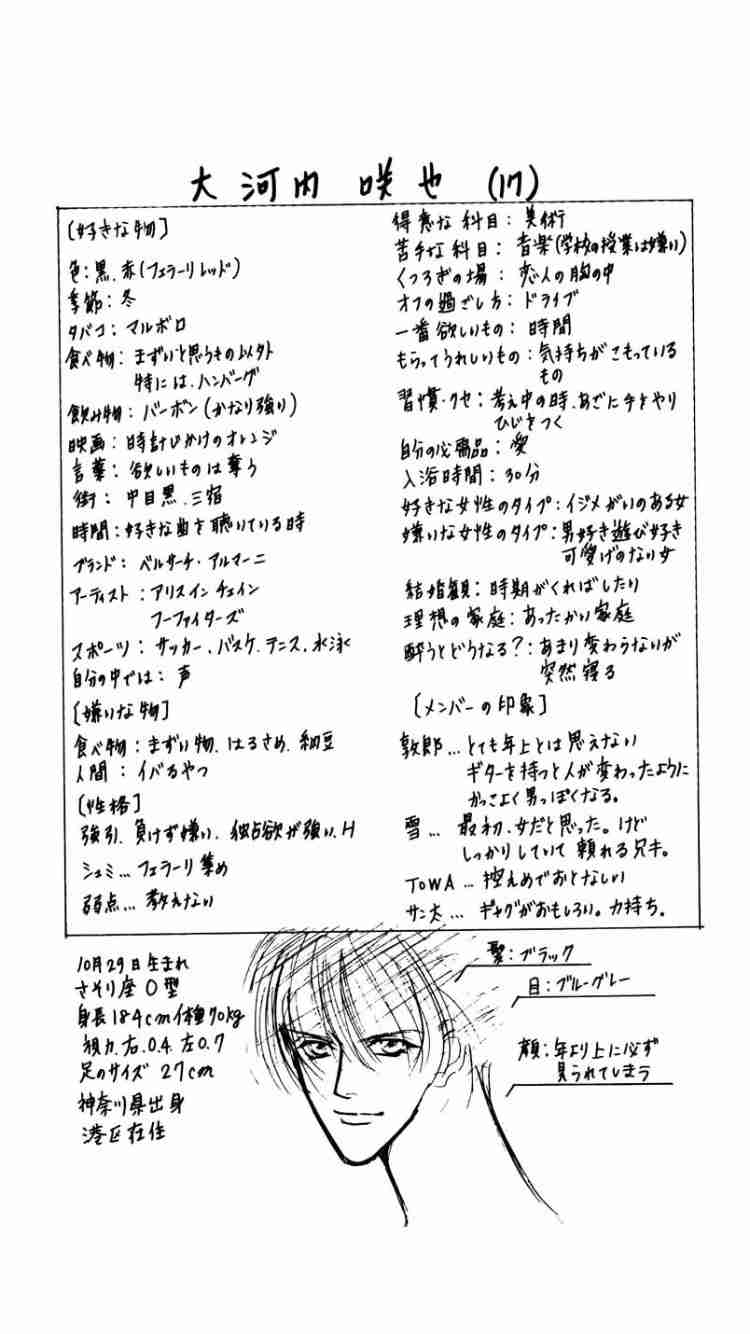 大河内 咲也 (17)
[好きな物]
色：黒、赤(フェラーリレッド)
季節：冬
タバコ：マルボロ
食べ物：まずいと思うもの以外
特には、ハンバーグ
飲み物：バーボン(かなり強い)
映画：時計じかけのオレンジ
言葉：欲しいものは奪う
街：中目黒、三宿
時間：好きな曲を聴いている時
ブランド：ベルサーチ・アルマーニ
アーティスト：アリスインチェイン
フーファイターズ
スポーツ：サッカー、バスケ、テニス、水泳
自分の中では：声
[嫌いな物]
食べ物：まずい物、はるさめ、納豆
人間：イバるやつ
[性格]
強引、負けず嫌い、独占欲が強い、H
シュミ…フェラーリ集め
弱点…教えない
得意な科目：美術
苦手な科目：音楽(学校の授業は嫌い)
くつろぎの場：恋人の胸の中
オフの過ごし方：ドライブ
一番欲しいもの：時間
もらってうれしいもの：気持ちがこもっている
もの
習慣・クセ：考え中の時、あごに手をやり
ひじをつく
自分の必需品：愛
入浴時間：30分
好きな女性のタイプ：イジメがいのある女
嫌いな女性のタイプ：男好き遊び好き
可愛げのない女
結婚観：時期がくればしたい
理想の家庭：あったかい家庭
酔うとどうなる？：あまり変わらないが
突然寝る
[メンバーの印象]
敦郎…とても年上とは思えない
ギターを持つと人が変わったように
かっこよく男っぽくなる。
雪…最初、女だと思った。けど
しっかりしていて頼れる兄キ。
TOWA…控えめでおとなしい
サン太…ギャグがおもしろい。力持ち。
10月29日生まれ
さそり座O型
身長184cm体種70kg
視力、右、0.4 左0.7
足のサイズ 27cm
神奈川県出身
港区在住
髪：ブラック
目：ブルーグレー
顔：年より上に必ず
見られてしまう